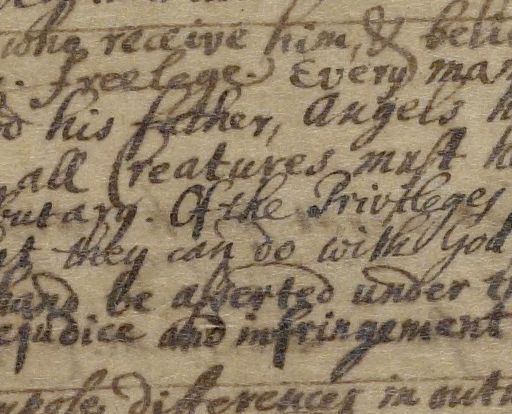 who receive him, & beli
freelage. Every man
his father, Angels h
all Creatures must h
butary. Of the Privileges
they can do with God
hand be asserted under th
ejudice and infringement
differences in out